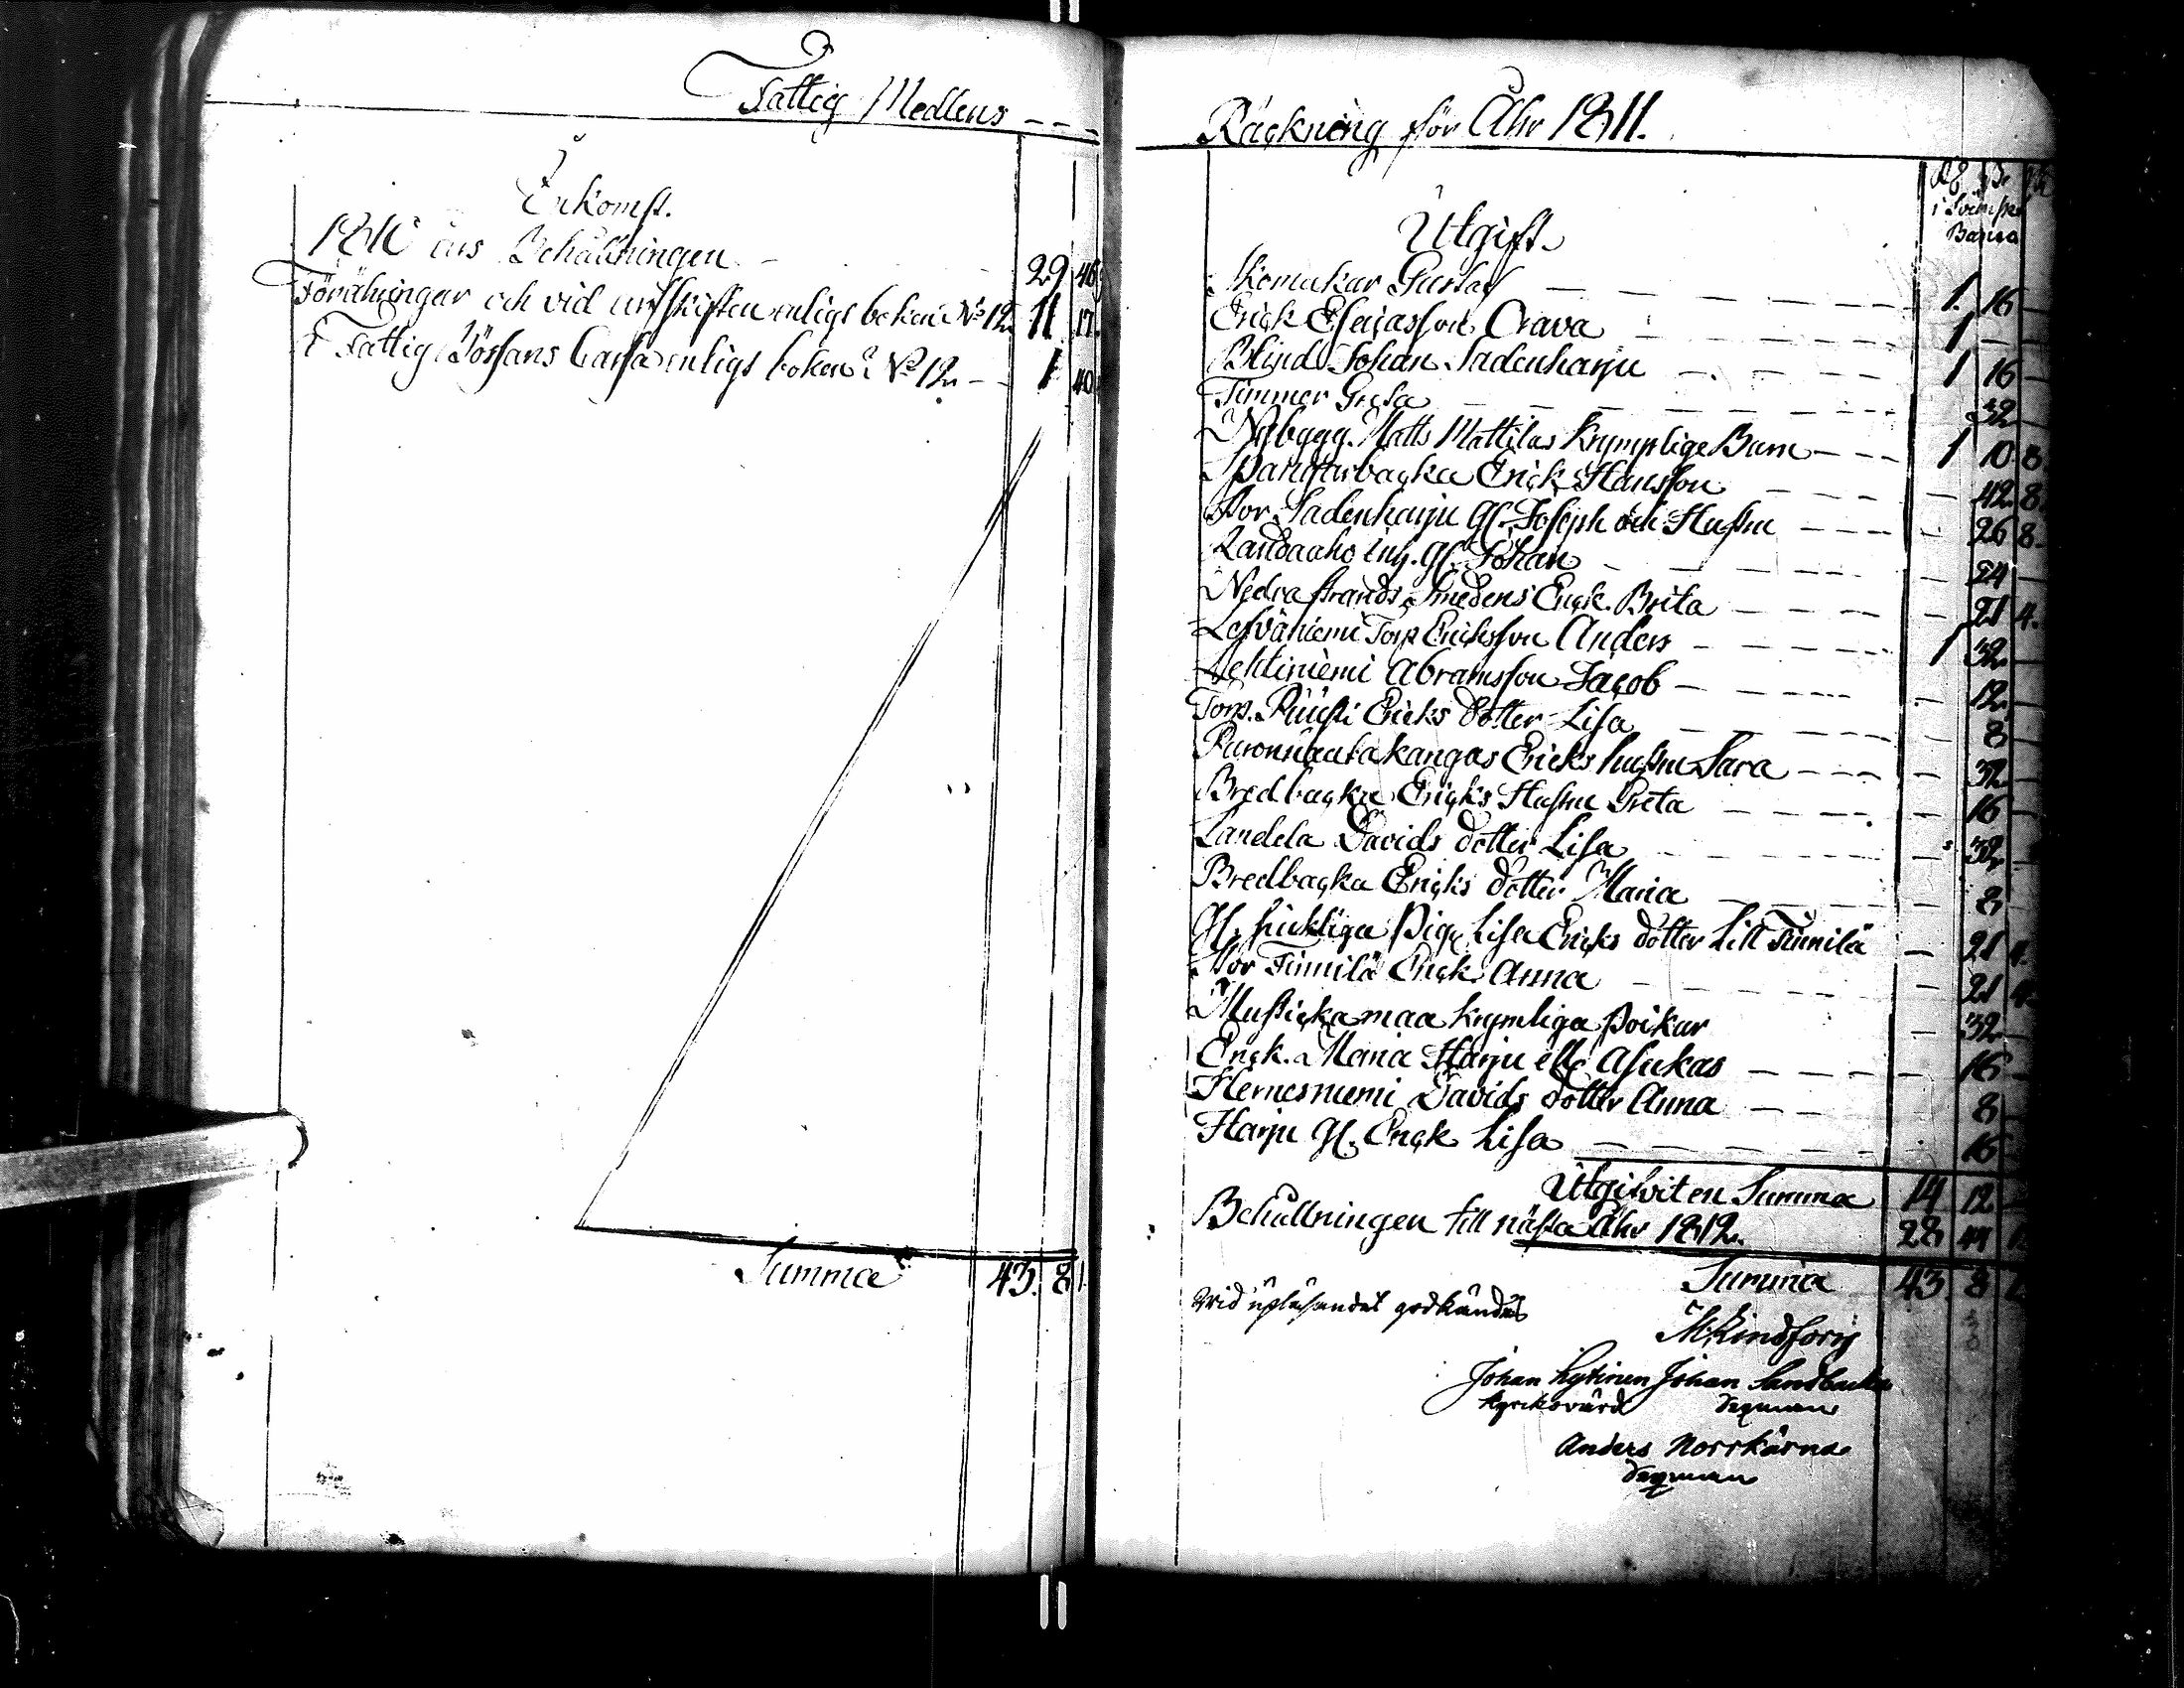 Fattig Medlens
Inkomst.
1810 års Behållningen 29 46
Förähringar och vid utskiften enligt boken No 12. 11 17.
I Fattig Bössans Cassa enligt boken No 12. 1 40
Summa 43. 8
Räckning för Åhr 1811.
i Svenske
Banco
Utgift.
Skomakar Gustaf 1. 16
Erick Esaiasson Orava 1
Blind Johan Sadenharju 1 16
Timmer Greta 32
Nybygg. Matts Mattilas Krymplige Barn 1 10 8.
Spangarbacka Erick Hansson 42 8.
Stor Sadenharju Gl. Joseph och Hustru 26 8.
Randaaho Inh. Gl. Johan 24
Nedra strands Smedens Enck. Brita 21 4.
Lesväniemi Torp. Ericksson Anders 1 32
Lehtiniemi Abramsson Jacob 12
Torp. Ericks dotter Lisa 8
Puronnautakangas Ericks hustru Sara 32
Bredbacka Ericks Hustru Greta 16
Sandela Davids dotter Lisa 32
Bredbacka Ericks dotter Maria 8
Gl. siukliga Piga Lisa Ericks dotter Lill Timilä 21 4.
Stor Timilä Enck. Anna 21 4
Mustickamaa krymliga Poikar 32
Enck. Maria Harju Asukas 16
Hernesniemi Davids dotter Anna 8
Harju Gl. Enck Lisa 16
Utgifvit en Summa 14 12
Behållningen till nästa Åhr 1812. 28 44
Summa 43. 8
Wid upläsandet godkändes
Johan Kytinen Johan Sandbacka
Kyrckovärd Sexman
Anders Norrkärna
Sexman